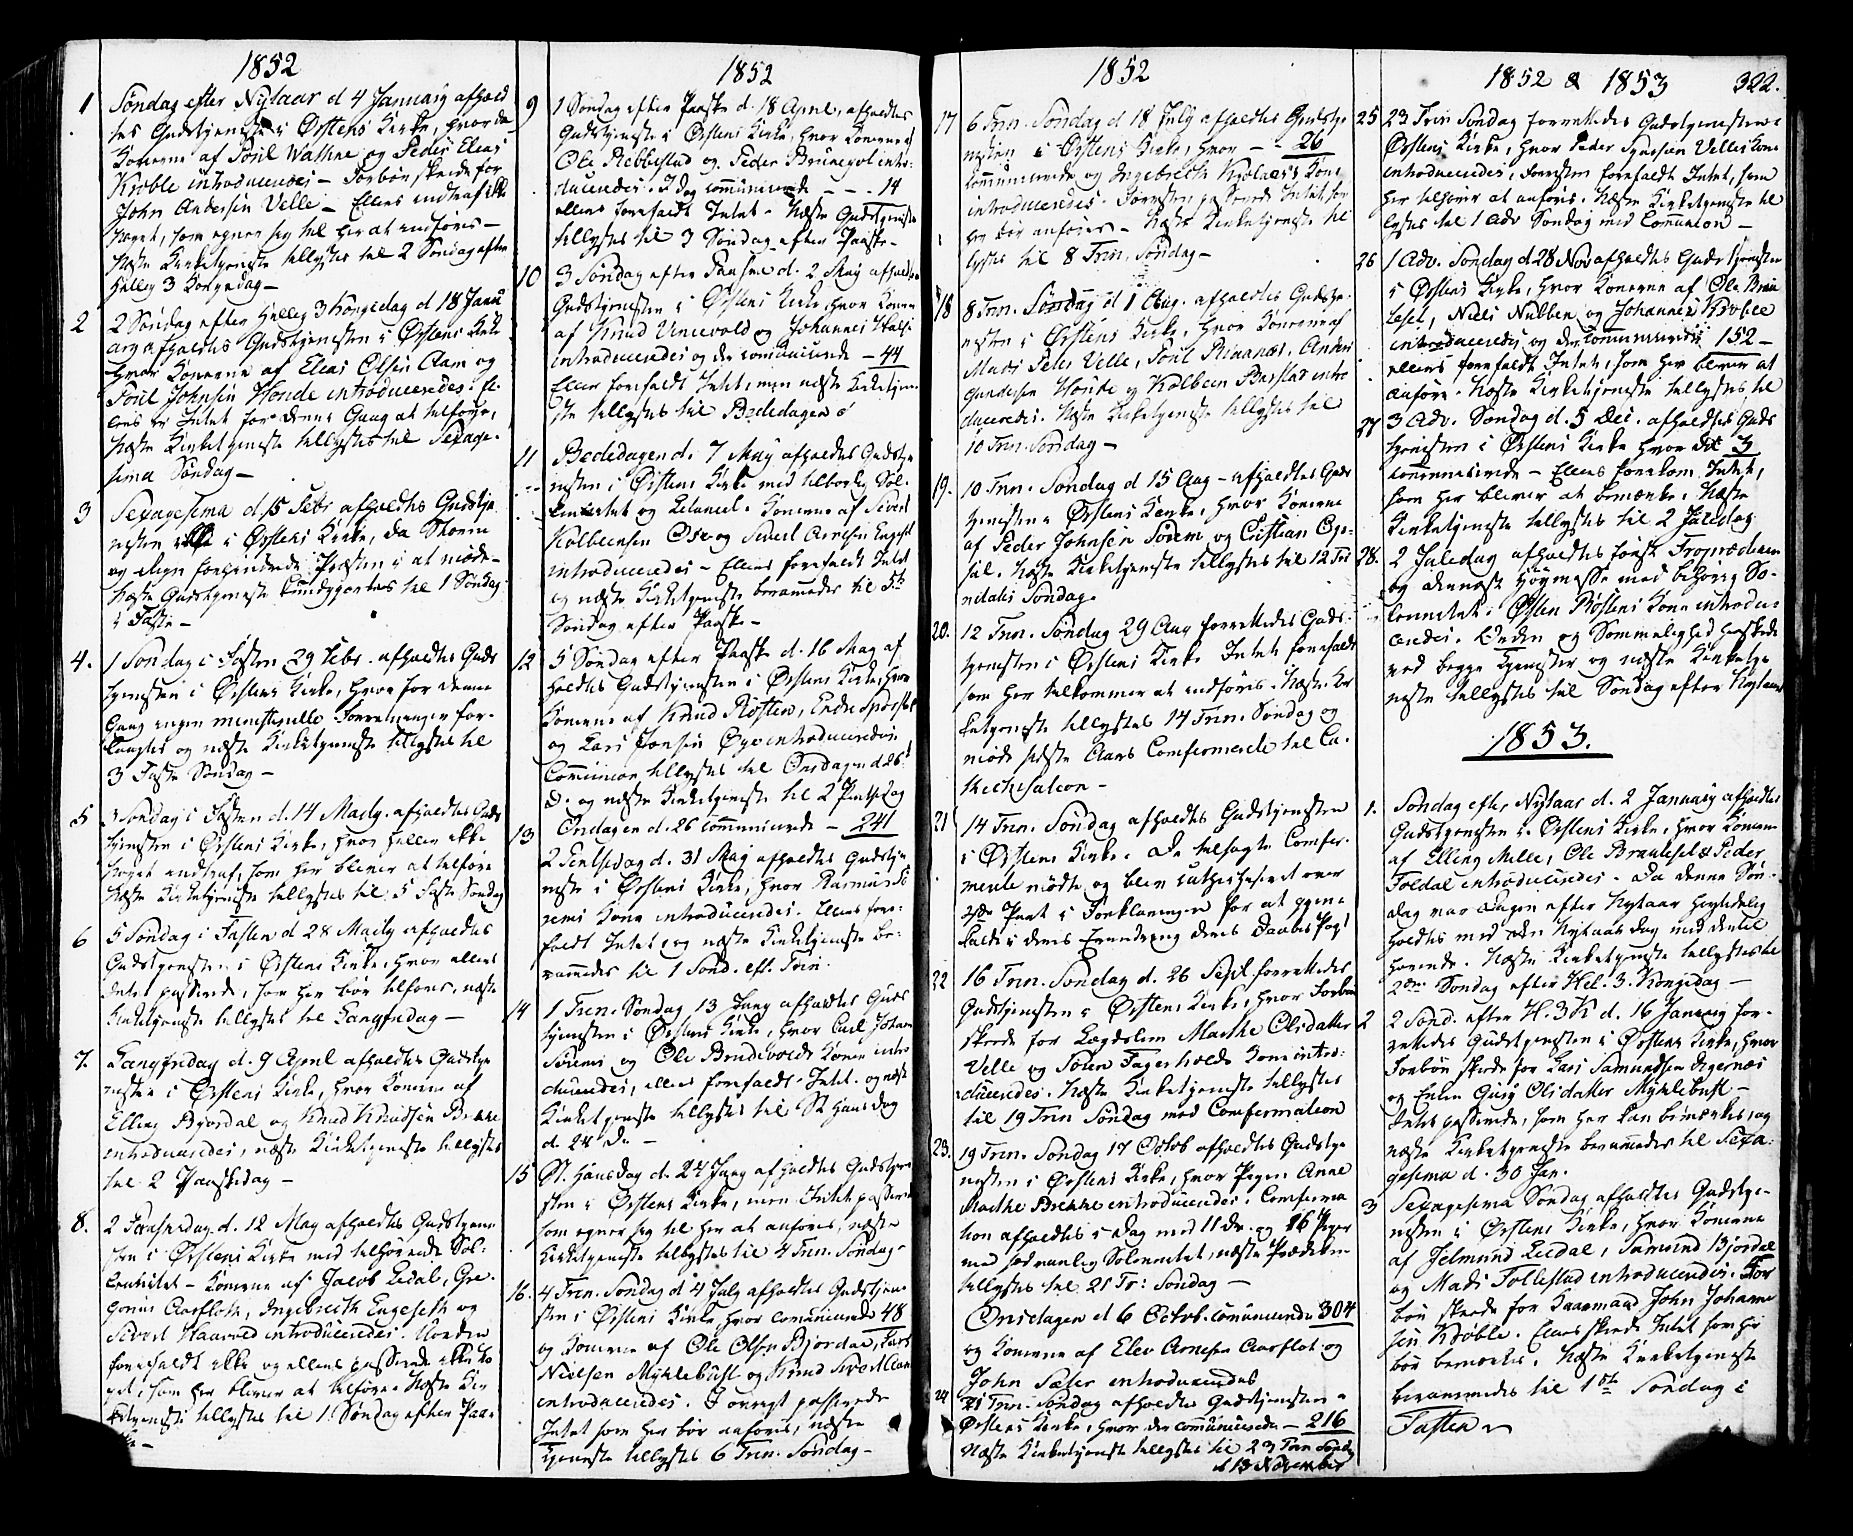 1852
1 Søndag efter Nytaar d 4 January afhold
tes Gudstjeneste i Ørstens Kirke, hvor da
Konerne af Poul Wathne og Peder Elias
Krøble introducerdes – Forbøn skeede for
John Andersen Velle – Ellers indtraf ikke
Noget, som egner sig til her at indføres –
Næste Kirketjeneste tillystes til 2 Søndag efter
Hellig 3 Kongedag –
2 2 Søndag efter Hellig 3 Kongedag d 18 Janu
ary afholdtes Gudstjenesten i Ørstens Kirke
hvor Konerne af Elias Olsen Aam og
Poul Johnsen Hovde introducerdes. El-
lers er Intet for denne Gang at tilføye,
Næste Kirketjeneste tillystes til Sexage-
sima Søndag –
3 Sexagesima d. 15 Febr afholdtes Gudstje
nesten i Ørstens Kirke, da Storm
og Regn forhindrede Præsten i at møde –
Næste Gudstjeneste kundgjordes til 1 Søndag
i Faste –
4. 1 Søndag i Fasten 29 Febr. afholdtes Guds
tjenesten i Ørstens Kirke, hvor for denne
Gang ingen ministerielle Forretninger for-
langtes og næste Kirketjeneste tillystes til
3 Faste Søndag –
5 3 Søndag i Fasten d. 14 Marty. afholdtes Guds
tjenesten i Ørstens Kirke, hvor heller ikke
Noget indtraf, som her bliver at tilføre
Næste Kirketjeneste tillystes til 5 Faste Søndag
6 5 Søndag i Fasten d 28 Marty afholdtes
Gudstjenesten i Ørstens Kirke, hvor ellers
Intet passerede, som her bør tilføres, næste
Kirketjeneste tillystes til Langfredag –
7. Langfredag d. 9 April afholdtes Gudstje
nesten i Ørstens Kirke, hvor Konerne af
Elling Bjordal og Knud Knudsen Brekke
introducerdes, næste Kirketjeneste tillystes
til 2 Paaskedag –
8. 2 Paaskedag d. 12 May afholdtes Gudstjene
sten i Ørstens Kirke med tilhørende Sol-
lennitet – Konerne af Jacob Lidal, Gre-
gorius Aarfloth, Ingebrecth Engeseth og
Sivert Haavold introducerdes. Uorden
forefaldt ikke og ellers passerede ikke No
get, som her bliver at tilføre. Næste Kir
ketjeneste tillystes til 1 Søndag efter Paa-
1852
9 1 Søndag efter Paaske d. 18 April, afholdtes
Gudstjenesten i Ørstens Kirke, hvor Konerne af
Ole Rebbestad og Peder Brunevol intro-
ducerdes. I dag communicerede – – 14
ellers forefaldt Intet. Næste Gudstjeneste
tillystes til 3 Søndag efter Paaske –
10 3 Søndag efter Paaske d. 2 May afholdtes
Gudstjenesten i Ørstens Kirke, hvor Konen
af Knud Vinevold og Johannes
introducerdes og der communicerede – 44
Eller forefaldt Intet, men næste Kirketjene
ste tillystes til Bededagen
11 Bededagen d. 7 May afholdtes Gudstje
nesten i Ørstens Kirke med tilbørlig Sol-
lennitet og Litaniet. Konerne af Sivert
Kolbeensen Ose og Sivert Arnesen Engeset
introducerdes – Ellers forefaldt Intet
og næste Kirketjeneste berammedes til 5te
Søndag efter Paaske –
12 5 Søndag efter Paaske d. 16 May af
holdtes Gudstjenesten i Ørstens Kirke, hvor
Konerne af Knud Røsten, Endre
og Lars Jonsen Øye introducerdes.
Communion tillystes til Onsdagen d 26
d. og næste Kirketjeneste til 2 Pintsedag
13 Onsdagen d. 26 communicerede – 241
2 Pintsedag d. 31 May afholdtes Gudstje
neste i Ørstens Kirke, hvor Rasmus
Kone introducerdes. Ellers fore-
faldt Intet, og næste Kirketjeneste be-
rammedes til 1 Sønd. eft. Trin.
14 1 Trin. Søndag 13 Juny afholdtes Guds
tjenesten i Ørstens Kirke, hvor Carl Johan
og Ole Brudevolds Koner intro
ducerdes, ellers forefaldt Intet. og næste
Kirketjeneste tillystes til St Hansdag
d. 24 Ds –
15 St. Hansdag d. 24 Juny afholdtes Gudstjene
sten i Ørstens Kirke, men Intet passerede
som egner sig til her at anføres, næste
Kirketjeneste tillystes til 4 Trin. Søndag –
16. 4 Trin. Søndag d 4 July afholdtes Gudstjene
sten i Ørstens Kirke, hvor communicerede 48
og Konerne af Ole Olsen Bjordal, Lars
Nielsen Myklebust og Knud Aam
introducerdes. I øvrigt passerede
Intet som her bør anføres, næste
Tjeneste tillystes 6 Trin. Søndag –
1852
17 6 Trin. Søndag d 18 July afholdtes Gudstje
nesten i Ørstens Kirke, hvor – – 26
communicerede og Ingebrecth Kone
introducerdes. Forresten passerede Intet, som
her bør anføres – Næste Kirketjeneste til
lystes til 8 Trin. Søndag –
18 8 Trin. Søndag d 1 Aug. afholdtes Gudstje-
nesten i Ørstens Kirke, hvor Konerne af
Mads Peter Velle, Poul Rimanæs, Anders
Gundersen Hovde og Kolbeen Barstad intro
ducerdes. Næste Kirketjeneste tillystes til
10 Trin. Søndag –
19. 10 Trin. Søndag d 15 Aug – afholdtes Guds
tjenesten i Ørstens Kirke, hvor Konerne
af Peder Johnsen Sørem og Cristian Oge-
sul. Næste Kirketjeneste tillystes til 12 Tri
nitatis Søndag.
20. 12 Trin. Søndag 29 Aug forrettedes Guds-
tjenesten i Ørstens Kirke Intet forefaldt
som her tilkommer at indføres. Næste Kir
ketjeneste tillystes 14 Trin. Søndag og
møde sidste Aars Confirmerede til Ca-
thechisation –
21 14 Trin. Søndag afholdtes Gudstjenesten
i Ørstens Kirke. De tilsagte Confir-
merede mødte og blev catechiseret over
2den Part i Forklaringen for at gjen-
kalde i deres Erindring deres Daabs Pagt
22 16 Trin. Søndag d. 26 Sept. forrettedes
Gudstjenesten i Ørstens Kirke, hvor Forbøn
skede for Lægdslem Marthe Olsdatter
Velle og Søren Fagerholds Kone intro-
ducerdes. Næste Kirketjeneste tillystes
til 19 Trin Søndag med Confirmation
23. 19 Trin. Søndag 17 Octob afholdtes Gudstje
nesten i Ørstens Kirke, hvor Pigen Anne
Marthe Brekke introducerdes. Confirma
tion afholdtes i Dag med 11 Dr. og 16 Piger
med sædvanlig Solennitet, næste Prædiken
tillystes til 21 Tr: Søndag –
Onsdagen d 6 Octob. communicerede 304
og Konerne af Elev Arnesen Aarflot og
John Sæter introducerdes
24 21 Trin. Søndag afholdtes Gudstjenesten i
Ørstens Kirke, hvor der communicerede – 216
Næste Kirketjeneste tillystes til 23 Trin Søndag
d 13 November
1852 & 1853 322.
25 23 Trin Søndag forrettedes Gudstjenesten i
Ørstens Kirke, hvor Peder Iversen Velles Kone
introducerdes, Forresten forefaldt Intet, som
her tilhører at anføres. Næste Kirketjeneste til
lystes til 1 Adv Søndag med Comunion –
26 1 Adv. Søndag d 28 Nov afholdtes Gudstjenesten
i Ørstens Kirke, hvor Konerne af Ole Brau
teset, Niels Nubben og Johannes Krøble
introducerdes og der communicerede 152 –
ellers forefaldt Intet, som her bliver at
anføre. Næste Kirketjeneste tillystes til
27 3 Adv. Søndag d. 5 Dec. afholdtes Guds
tjenesten i Ørstens Kirke hvor der 3
communicerede – Ellers forekom Intet,
som her bliver at bemærke. Næste
Kirketjeneste tillystes til 2 Juledag
28. 2 Juledag afholdtes først Froprædiken
og dernæst Høymesse med behørig So-
lennitet. Østen Røstens Kone introdu-
cerdes. Orden og Sømmelighed herskede
ved begge Tjenester og næste Kirketje
neste tillystes til Søndag efter Nytaar
1853.
1. Søndag efter Nytaar d. 2 January afholdtes
Gudstjenesten i Ørstens Kirke, hvor Konerne
af Elling Melle, Ole Brauteset & Peder
Foldal introducerdes – Da denne Søn-
dag var Dagen efter Nytaar høytidelig
holdtes med den Nytaars dag med dertil
hørende. Næste Kirketjeneste tillystes til
2den Søndag efter Hel. 3. Kongedag –
2 2 Sønd. efter H. 3 K d. 16 January for-
rettedes Gudstjenesten i Ørstens Kirke, hvor
Forbøn skede for Lars Samundsen Digernæs
og Enken Guri Olsdatter Myklebust –
Intet passerede, som her kan bemærkes, og
næste Kirketjeneste berammedes til Sexa-
gesima d. 30 Jan.
3 Sexagesima Søndag afholdtes Gudstje-
nesten i Ørstens Kirke, hvor Konerne
af Jetmund Lidal, Samund Bjordal
og Mads Follestad introducerdes. For
bøn skede for Kaarmand John Johanne
sen Krøble. Ellers skede Intet som her
bør bemærkes. Næste Kirketjeneste
berammedes til 1ste Søndag i
Fasten –